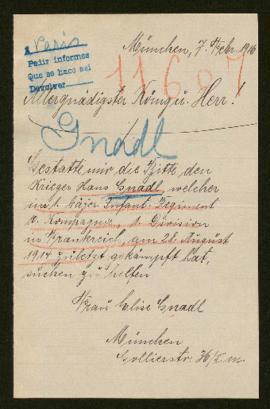 A Paris
Pedir informes
Que se hace así
Devolver
München, 7. Febr. 1916
11687
Allergnädigster König u. Herr!
Gnadl
Gestatte mir die Bitte, den
Krieger Hans Gnadl, welcher
im 1. bajer. Infant. Regiment
Kompagnie, 1. Division
in Frankreich, am 28. August
1914 zuletzt gekämpft hat,
suchen zu helfen
Frau Elise Gnadl
München
Gollierstr.